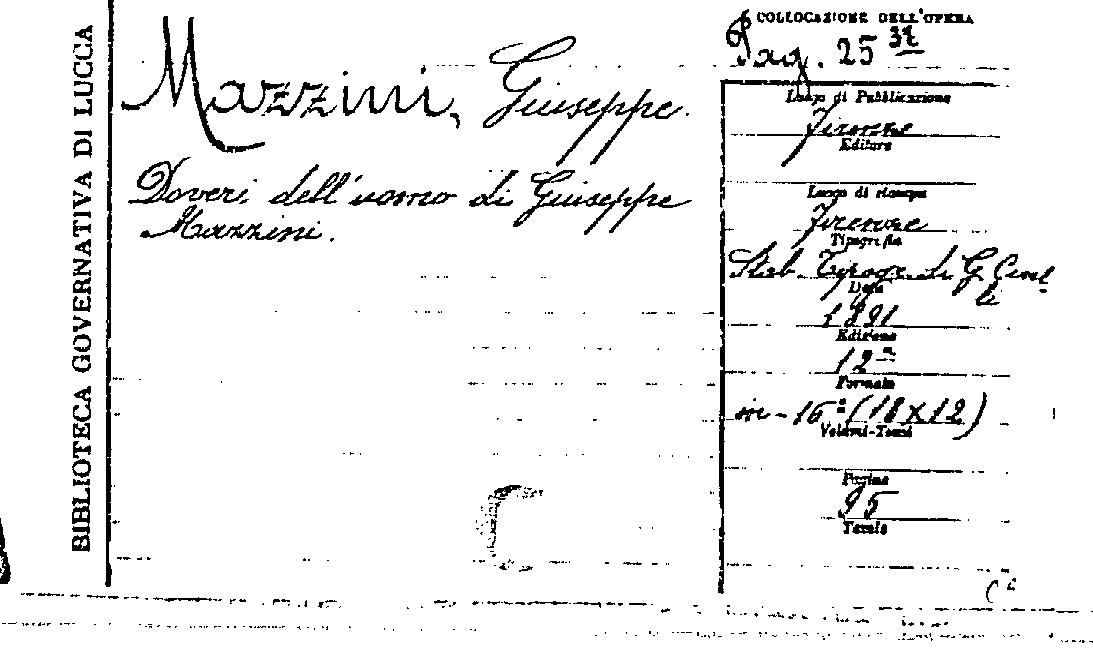 BIBLIOTECA GOVERNATIVA DI LUCCA
Mazzini, Giuseppe.
Doveri dell'uomo di Giuseppe
Mazzini.
C
COLLOCAZIONE DELL'OPERA
Pag. 25 32
Luogo di Pubblicazione
Firenze
Editore
Luogo di stampa
Firenze
Tipografia
Stab. Tipogr. di G. Civel
li
Data
1891
Edizione
12ª
Formato
in-16°(18x12)
Volumi-Tomi
Pagine
95
Tavole